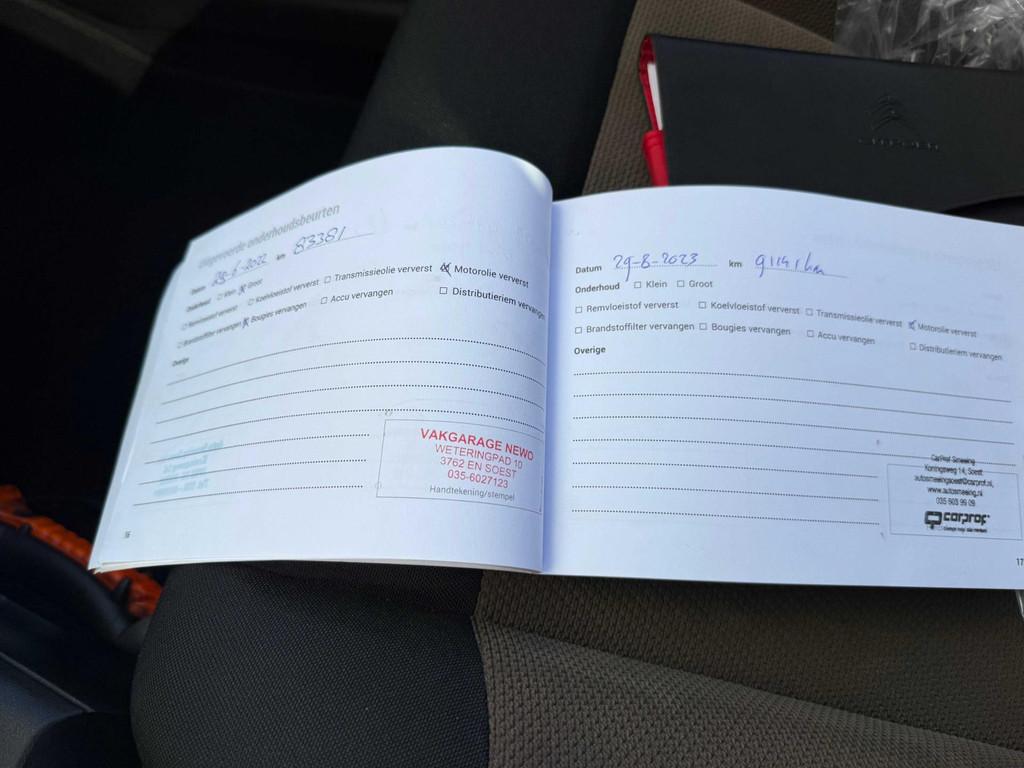 Uitgevoerde onderhoudsbeurten
Datum 28-6-2022 km 83381
Onderhoud Klein Groot
Remvloeistof ververst Koelvloeistof ververst Transmissieolie ververst Motorolie ververst
Brandstoffilter vervangen Bougies vervangen Accu vervangen Distributieriem vervangen
Overige
VAKGARAGE NEWO
WETERINGPAD 10
3762 EN SOEST
035-6027123
Handtekening/stempel
16
Datum 29-8-2023 km 91141 km
Onderhoud Klein Groot
Remvloeistof ververst Koelvloeistof ververst Transmissieolie ververst Motorolie ververst
Brandstoffilter vervangen Bougies vervangen Accu vervangen Distributieriem vervangen
Overige
CarProf Smeeing
Koningsweg 14, Soest
autosmeeingsoest@carprof.nl,
www.autosmeeing.nl
035 603 99 09
carprof
17
CITROËN